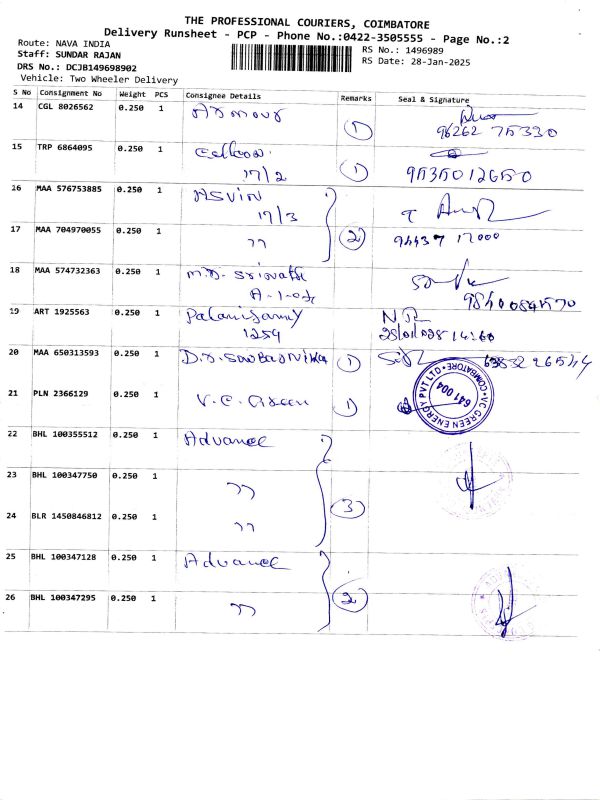 THE PROFESSIONAL COURIERS, COIMBATORE
Delivery Runsheet - PCP - Phone No.:0422-3505555 - Page No.:2
Route: NAVA INDIA
RS No.: 1496989
Staff: SUNDAR RAJAN
RS Date: 28-Jan-2025
DRS No.: DCJB149698902
Vehicle: Two Wheeler Delivery
S No Consignment No Weight PCS Consignee Details Remarks Seal & Signature
14 CGL 8026562 0.250 1 Armour 1
96262 75330
15 TRP 6864095 0.250 1
17/2 1 9535012650
26 MAA 576753885 0.250 1 ASVIN
17/3
17 MAA 704970055 0.250 1 " 2 94437 17000
18 MAA 574732363 0.250 1 M.D. Srivatsa
19 ART 1925563 0.250 1 Palanisamy
1254
20 MAA 650313593 0.250 1 1
21 PLN 2366129 0.250 1 V.C. Green 1
VC GREEN ENERGY PVT LTD * COIMBATORE * 641 004
22 BHL 100355512 0.250 1 Advance
23 BHL 100347750 0.250 1 " 3
24 BLR 1450846812 0.250 1 "
25 BHL 100347128 0.250 1 Advance
26 BHL 100347295 0.250 1 " 2